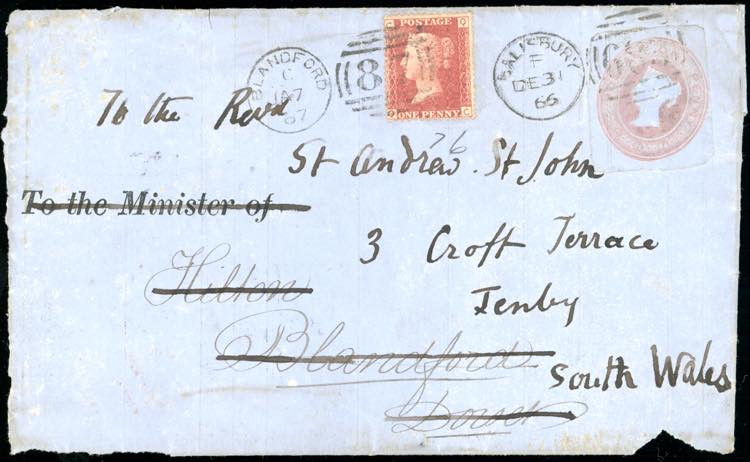 POSTAGE
ONE PENNY
BLANDFORD
C
JA7
67
8
SALISBURY
F
DE31
66
To the Revd
76
St Andrew St John
To the Minister of
3 Croft Terrace
Hilton
Tenby
Blandford
South Wales
Dorset